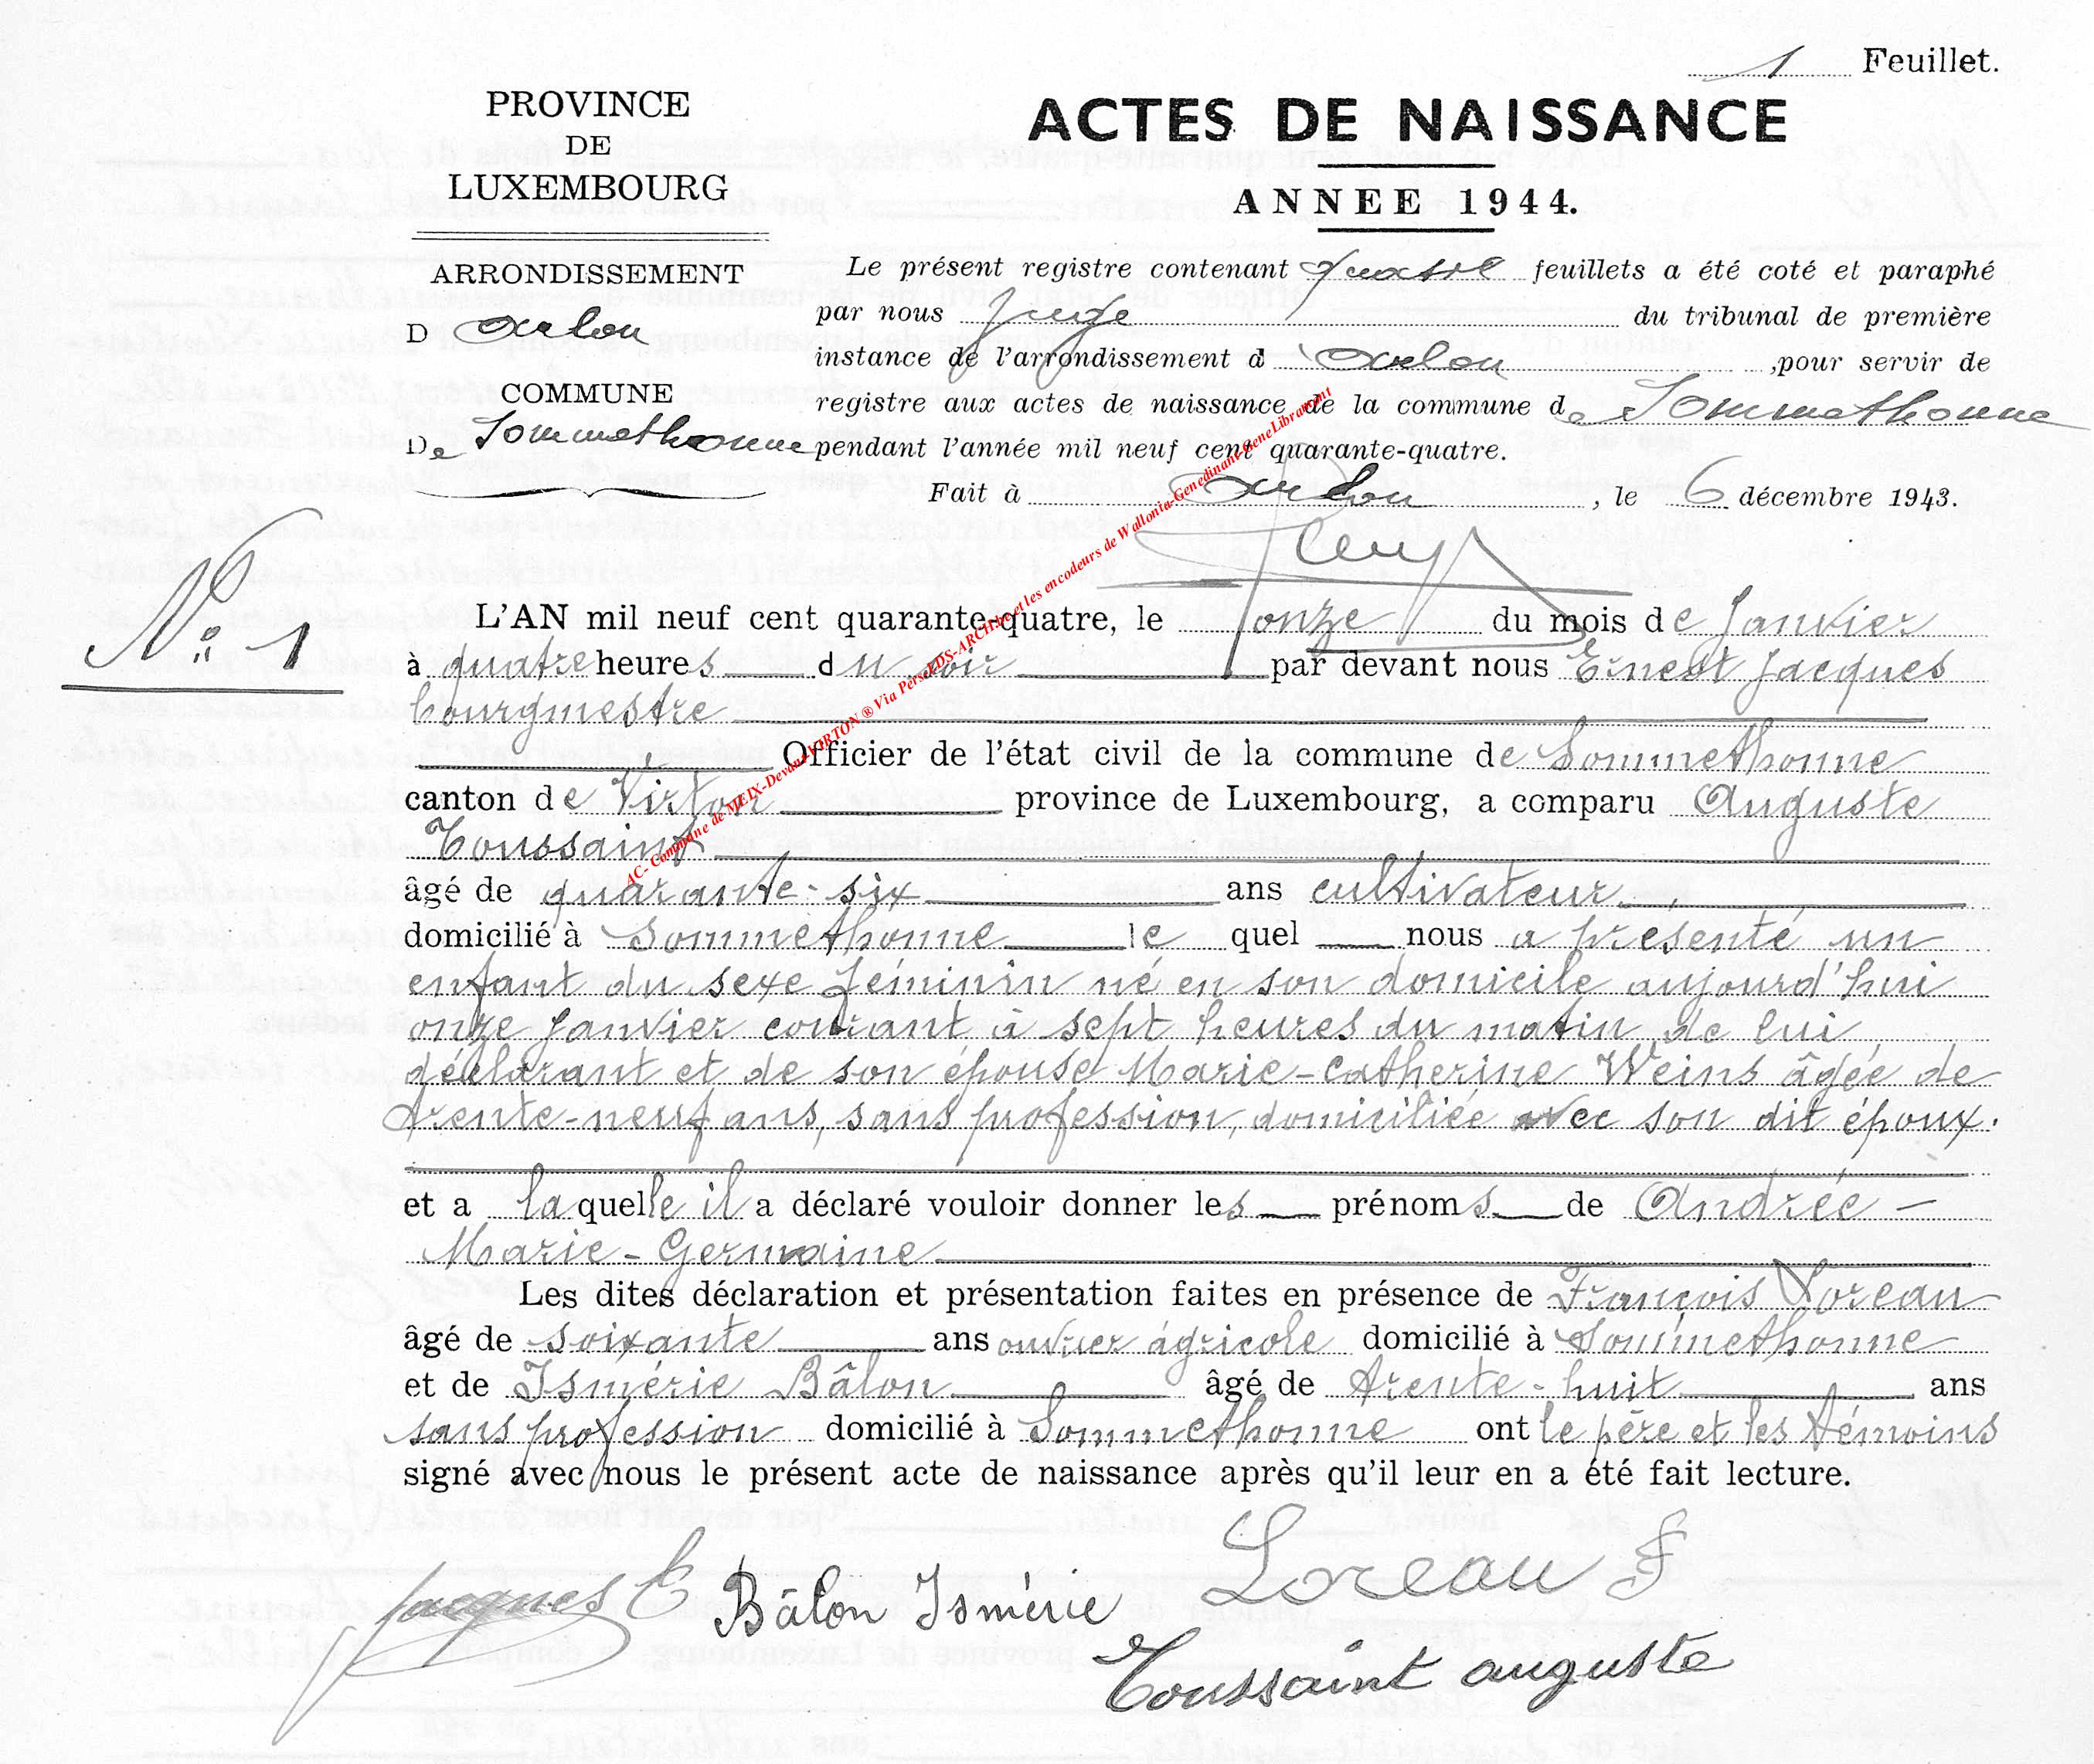 1 Feuillet.
PROVINCE
DE
LUXEMBOURG
ARRONDISSEMENT
D Arlon
COMMUNE
De Sommethonne
ACTES DE NAISSANCE
ANNEE 1944.
Le présent registre contenant quatre feuillets a été coté et paraphé
par nous Juge du tribunal de première
instance de l'arrondissement d'Arlon, pour servir de
registre aux actes de naissance de la commune de Sommethonne
pendant l'année mil neuf cent quarante-quatre.
Fait à Arlon, le 6 décembre 1943.
N° 1
L'AN mil neuf cent quarante-quatre, le onze du mois de Janvier
à quatre heures du soir par devant nous Ernest Jacques
bourgmestre
Officier de l'état civil de la commune de Sommethonne
canton de Virton province de Luxembourg, a comparu Auguste
Toussaint
âgé de quarante-six ans cultivateur
domicilié à Sommethonne le quel nous a présenté un
enfant du sexe féminin né en son domicile aujourd'hui
onze Janvier courant à sept heures du matin de lui
déclarant et de son épouse Marie-Catherine Weins âgée de
trente-neuf ans, sans profession, domiciliée avec son dit époux.
et a laquelle il a déclaré vouloir donner les prénoms de Andrée-
Marie-Germaine
Les dites déclaration et présentation faites en présence de François Loreau
âgé de soixante ans ouvrier agricole domicilié à Sommethonne
et de Ismérie Bâlon âgé de trente-huit ans
sans profession domicilié à Sommethonne ont le père et les témoins
signé avec nous le présent acte de naissance après qu'il leur en a été fait lecture.
Jacques E Bâlon Ismérie Loreau F
Toussaint auguste
AC- Commune de MEIX-Devant-VIRTON ® Via Perso LDS-ARCH.be et les encodeurs de Wallonia-Genedinant-GeneLibramont